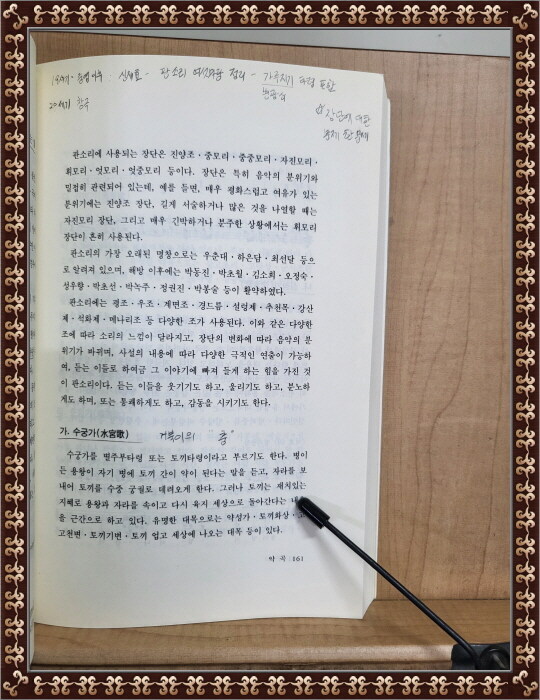 19세기 - 신재효 - 판소리 여섯마당 정리 -
20세기 창극
판소리에 사용되는 장단은 진양조·중모리·중중모리·자진모리·
휘모리·엇모리·엇중모리 등이다. 장단은 특히 음악의 분위기와
밀접히 관련되어 있는데, 예를 들면, 매우 평화스럽고 여유가 있는
분위기에는 진양조 장단, 길게 서술하거나 많은 것을 나열할 때는
자진모리 장단, 그리고 매우 긴박하거나 분주한 상황에서는 휘모리
장단이 흔히 사용된다.
판소리의 가장 오래된 명창으로는 우춘대·하은담·최선달 등으
로 알려져 있으며, 해방 이후에는 박동진·박초월·김소희·오정숙·
성우향·박초선·박녹주·정권진·박봉술 등이 활약하였다.
판소리에는 평조·우조·계면조·경드름·설렁제·추천목·강산
제·석화제·메나리조 등 다양한 조가 사용된다. 이와 같은 다양한
조에 따라 소리의 느낌이 달라지고, 장단의 변화에 따라 음악의 분
위기가 바뀌며, 사설의 내용에 따라 다양한 극적인 연출이 가능하
여, 듣는 이들로 하여금 그 이야기에 빠져 들게 하는 힘을 가진 것
이 판소리이다. 듣는 이들을 웃기기도 하고, 울리기도 하고, 분노하
게도 하며, 또는 통쾌하게도 하고, 감동을 시키기도 한다.
가. 수궁가(水宮歌) 거북이의 "충"
수궁가를 별주부타령 또는 토끼타령이라고 부르기도 한다. 병이
든 용왕이 자기 병에 토끼 간이 약이 된다는 말을 듣고, 자라를 보
내어 토끼를 수중 궁궐로 데려오게 한다. 그러나 토끼는 재치있는
지혜로 용왕과 자라를 속이고 다시 육지 세상으로 돌아간다는
을 근간으로 하고 있다. 유명한 대목으로는 약성가·토끼화상·
고천변·토끼기변·토끼 업고 세상에 나오는 대목 등이 있다.
악 곡 161